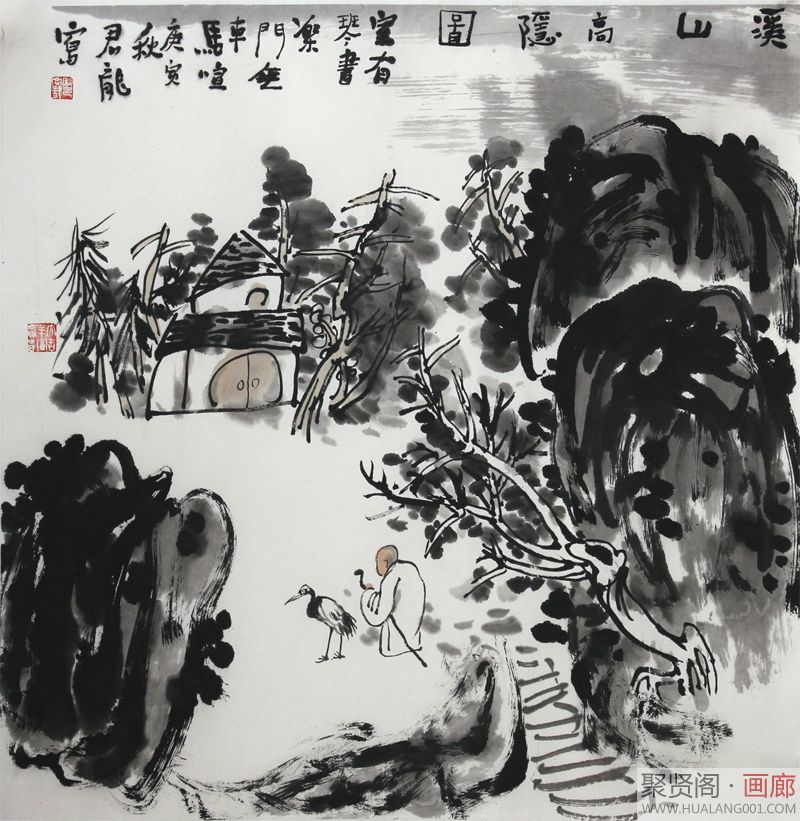 溪山高隱圖
室有
琴書
樂
門無
車
馬喧
庚寅
秋
君龍
寫
聚贤阁·画廊
WWW.HUALANG001.COM